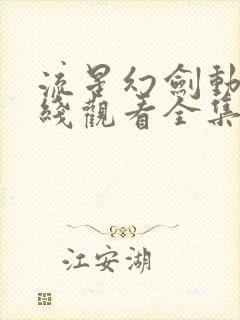 流星幻劍動
綫觀看全集
江安湖